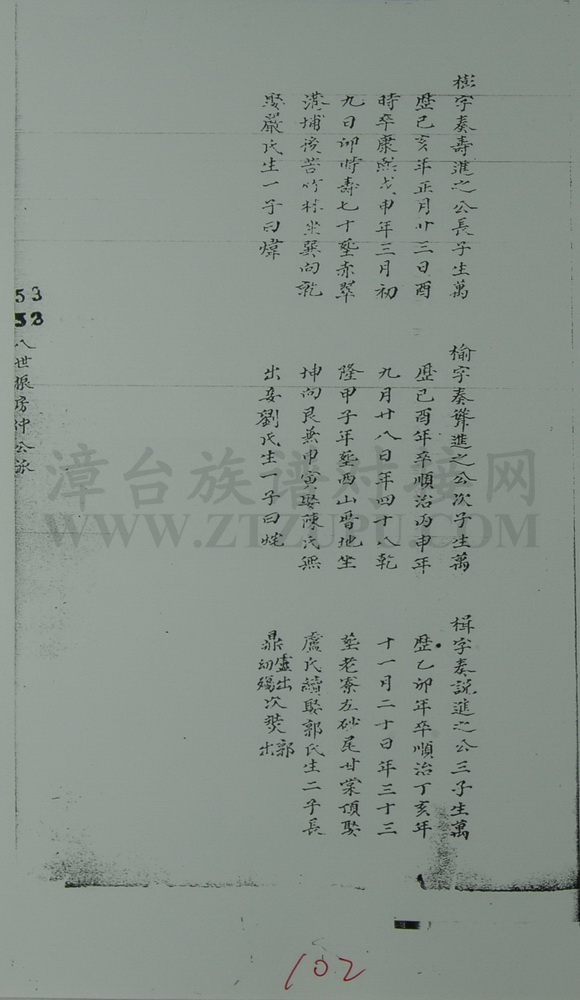 樹字奏壽進之公長子生萬
歷己亥年正月廿三日酉
時卒康熙戊申年三月初
九日卯時壽七十塟赤翠
港埔後苦竹林坐巽向乾
娶嚴氏生一子曰煒
榆字奏聲進之公次子生萬
歷己酉年卒順治丙申年
九月廿八日年四十八乾
隆甲子年塟西山晋地坐
坤向艮兼申寅娶陳氏無
出妾劉氏生一子曰烇
楫字奏説進之公三子生萬
歷乙卯年卒順治丁亥年
十一月二十日年三十三
塟老寮左砂尾甘棠頂娶
盧氏續娶郭氏生二子長
鼎盧出幼殤次爕郭出
53
52
八世振房仲公派
漳台族谱对接网
WWW.ZTZUPU.COM
102